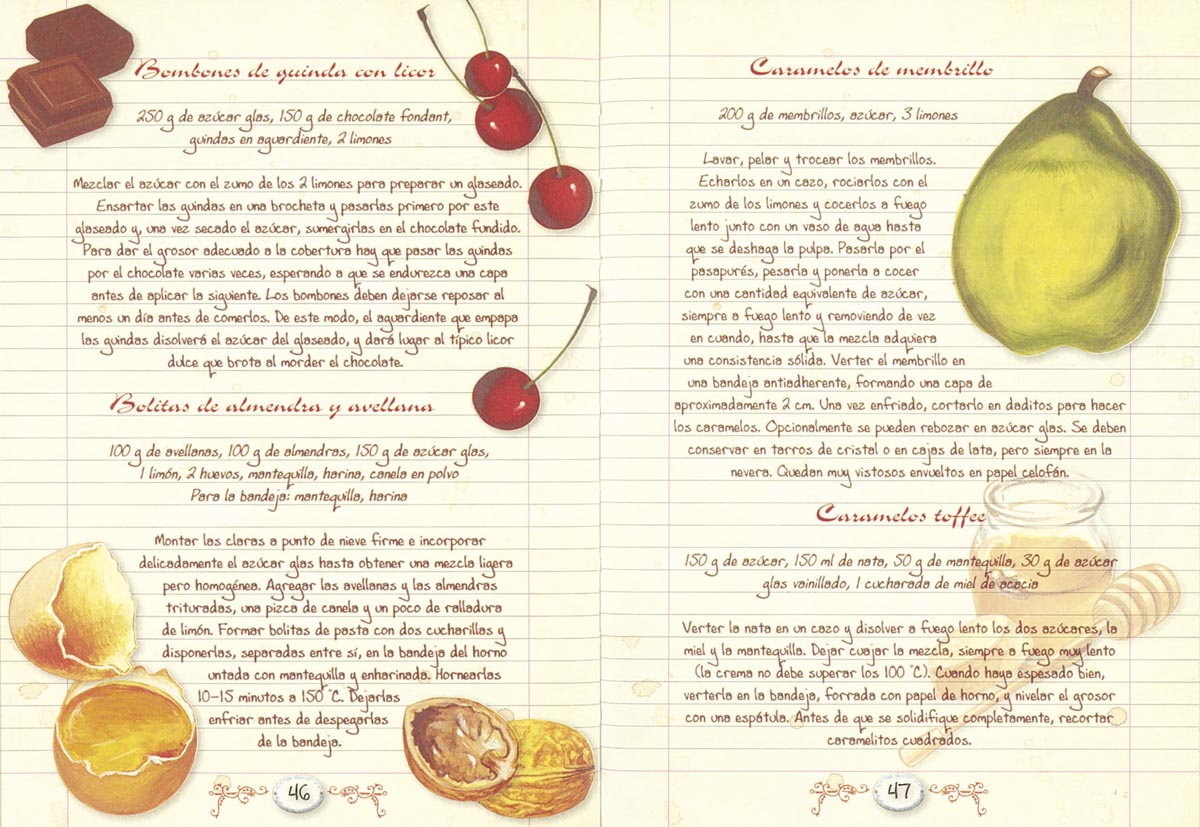 Bombones de guinda con licor
250 g de azúcar glas, 150 g de chocolate fondant,
guindas en aguardiente, 2 limones
Mezclar el azúcar con el zumo de los 2 limones para preparar un glaseado.
Ensartar las guindas en una brocheta y pasarlas primero por este
glaseado y, una vez secado el azúcar, sumergirlas en el chocolate fundido.
Para dar el grosor adecuado a la cobertura hay que pasar las guindas
por el chocolate varias veces, esperando a que se endurezca una capa
antes de aplicar la siguiente. Los bombones deben dejarse reposar al
menos un día antes de comerlos. De este modo, el aguardiente que empapa
las guindas disolverá el azúcar del glaseado, y dará lugar al típico licor
dulce que brota al morder el chocolate.
Bolitas de almendra y avellana
100 g de avellanas, 100 g de almendras, 150 g de azúcar glas,
1 limón, 2 huevos, mantequilla, harina, canela en polvo
Para la bandeja: mantequilla, harina
Montar las claras a punto de nieve firme e incorporar
delicadamente el azúcar glas hasta obtener una mezcla ligera
pero homogénea. Agregar las avellanas y las almendras
trituradas, una pizca de canela y un poco de ralladura
de limón. Formar bolitas de pasta con dos cucharillas y
disponerlas, separadas entre sí, en la bandeja del horno
untada con mantequilla y enharinada. Hornearlas
10-15 minutos a 150 °C. Dejarlas
enfriar antes de despegarlas
de la bandeja.
46
Caramelos de membrillo
200 g de membrillos, azúcar, 3 limones
Lavar, pelar y trocear los membrillos.
Echarlos en un cazo, rociarlos con el
zumo de los limones y cocerlos a fuego
lento junto con un vaso de agua hasta
que se deshaga la pulpa. Pasarla por el
pasapurés, pesarla y ponerla a cocer
con una cantidad equivalente de azúcar,
siempre a fuego lento y removiendo de vez
en cuando, hasta que la mezcla adquiera
una consistencia sólida. Verter el membrillo en
una bandeja antiadherente, formando una capa de
aproximadamente 2 cm. Una vez enfriado, cortarlo en daditos para hacer
los caramelos. Opcionalmente se pueden rebozar en azúcar glas. Se deben
conservar en tarros de cristal o en cajas de lata, pero siempre en la
nevera. Quedan muy vistosos envueltos en papel celofán.
Caramelos toffee
150 g de azúcar, 150 ml de nata, 50 g de mantequilla, 30 g de azúcar
glas vainillado, 1 cucharada de miel de acacia
Verter la nata en un cazo y disolver a fuego lento los dos azúcares, la
miel y la mantequilla. Dejar cuajar la mezcla, siempre a fuego muy lento
(la crema no debe superar los 100 °C). Cuando haya espesado bien,
verterla en la bandeja, forrada con papel de horno, y nivelar el grosor
con una espátula. Antes de que se solidifique completamente, recortar
caramelitos cuadrados.
47